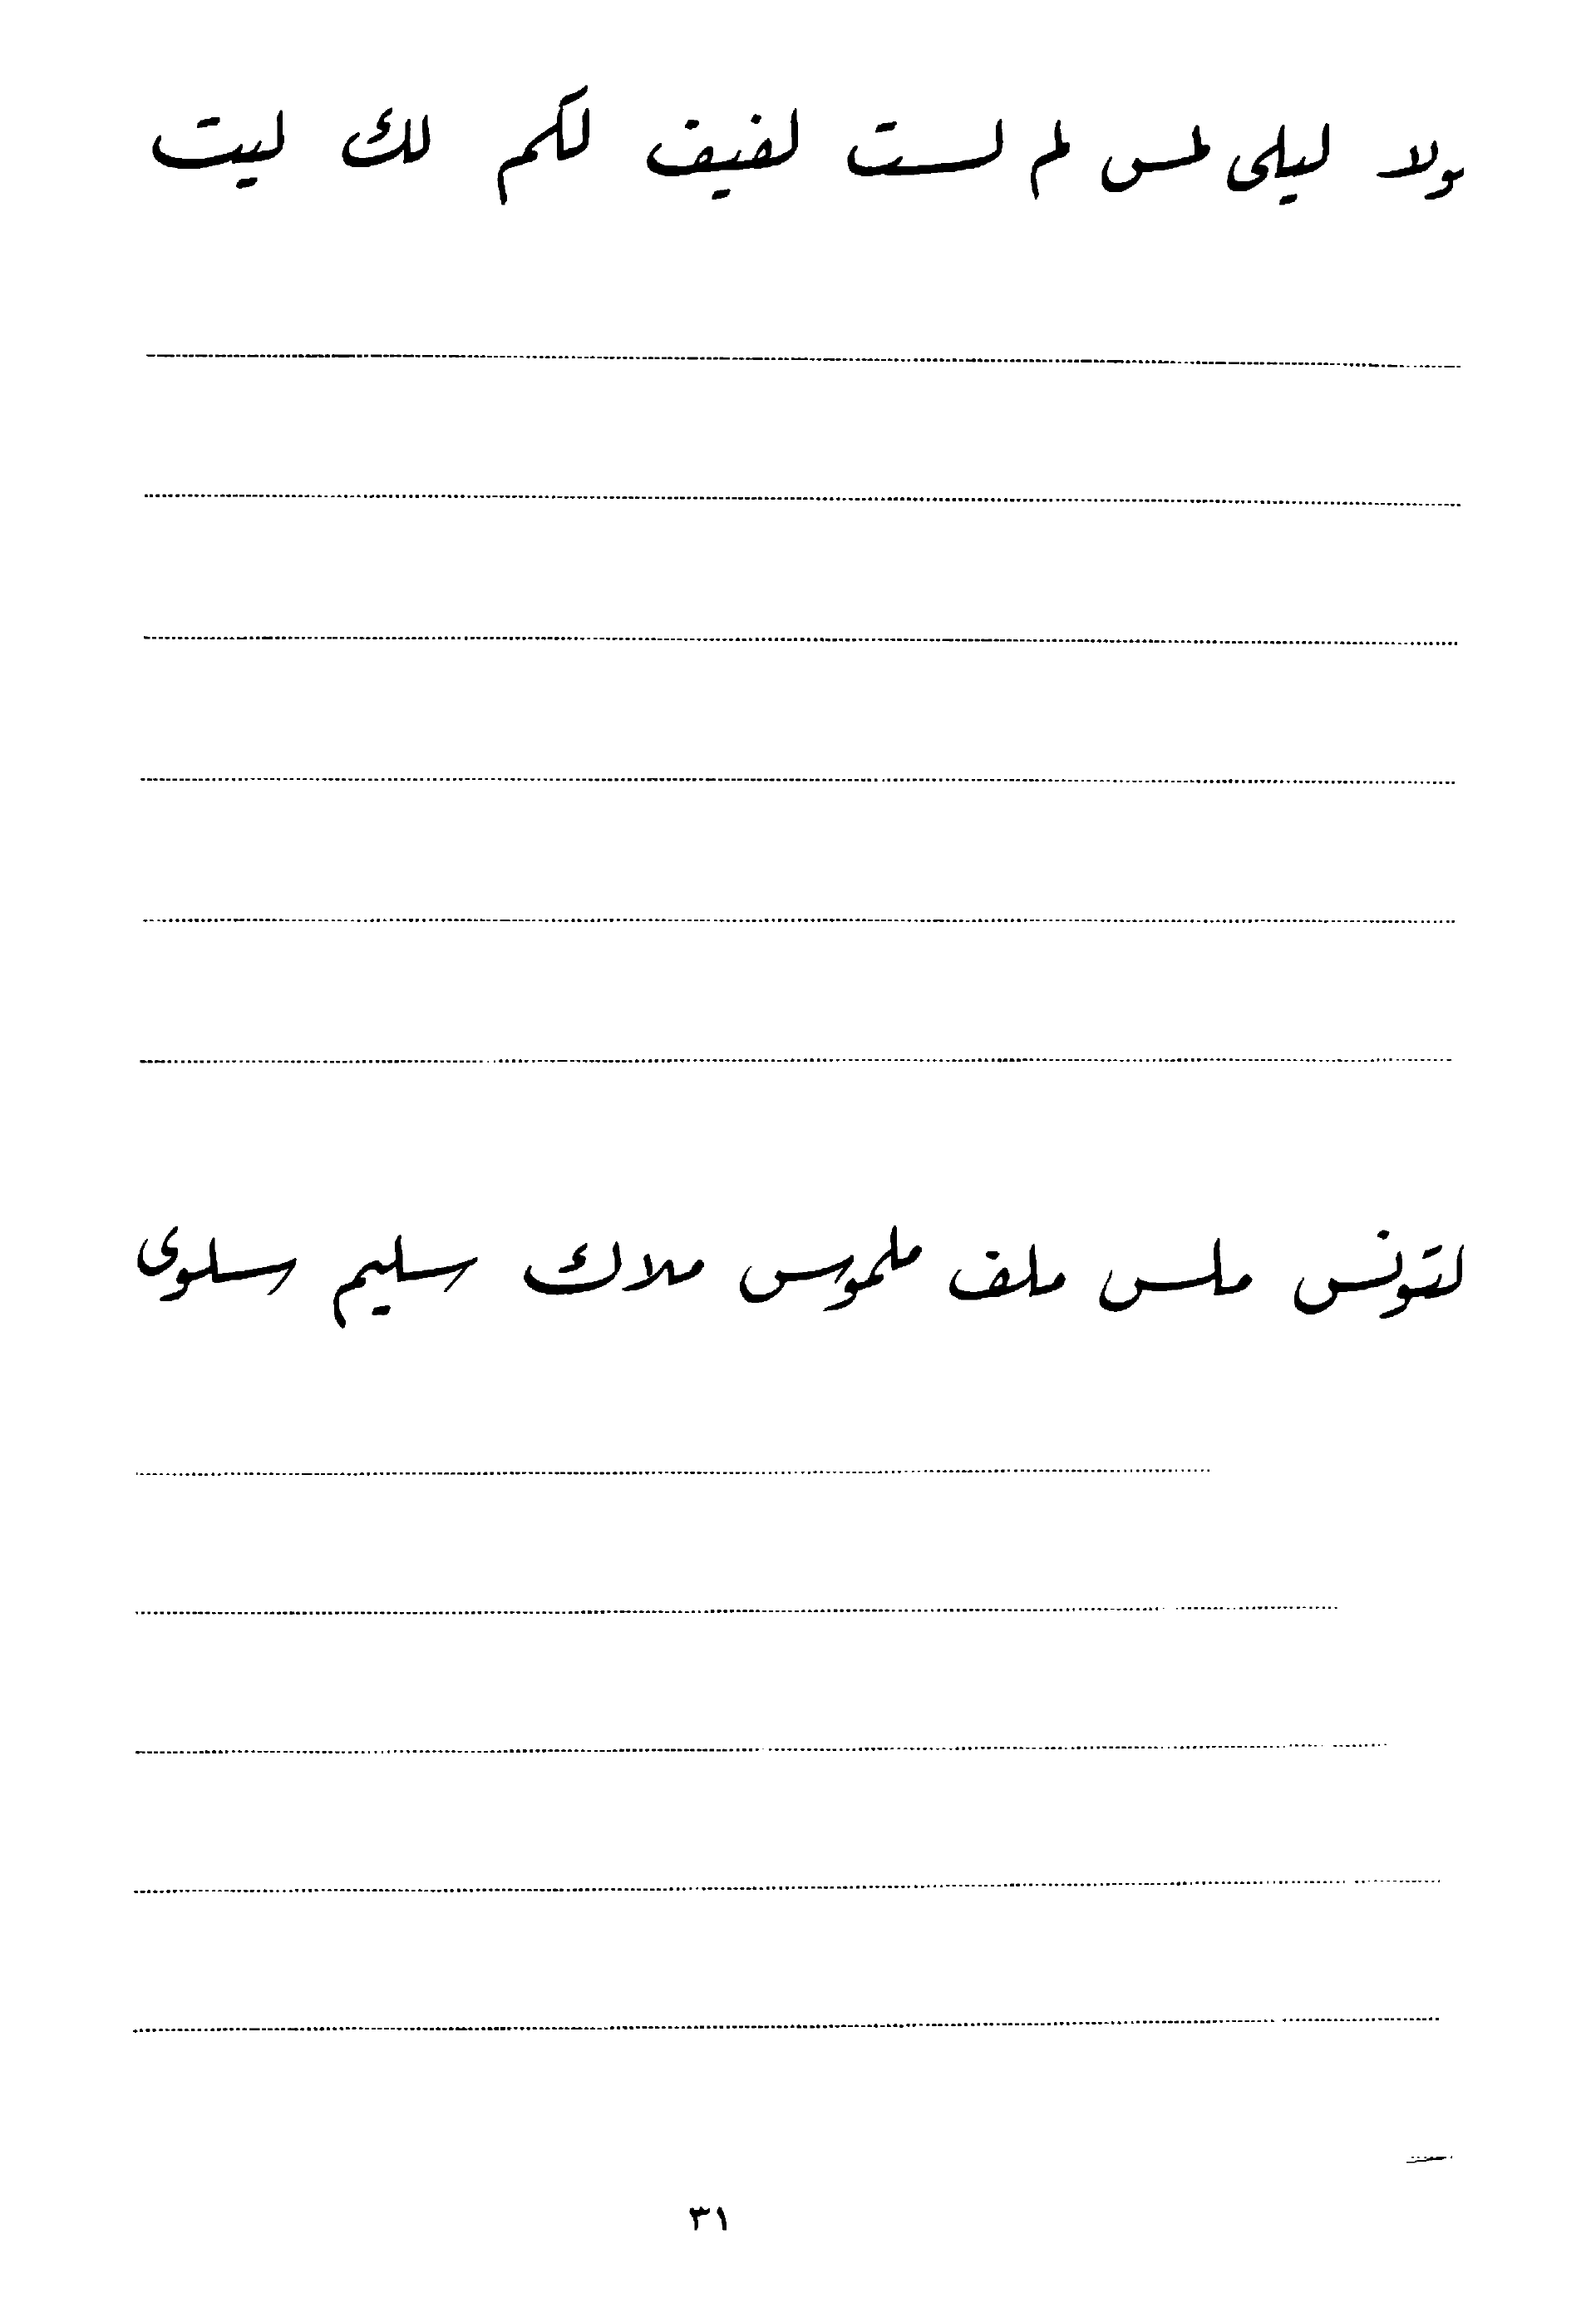 ليلى لمس لم لست لفيف لكم لك ليت
لتونس ملس ملف ملموس ملاك سليم سلوى
٣١